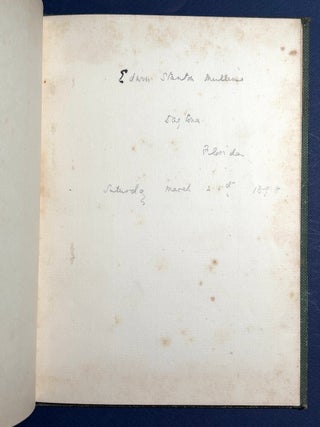 Edwin Stanton Mullins
Daytona
Florida
Saturday March 25th